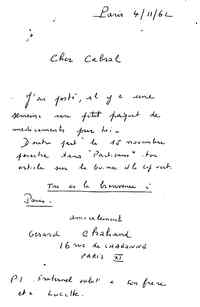 Paris 4/11/62
Cher Cabral
J'ai posté, il y a une
semaine un petit paquet de
medicaments pour toi.
D'autre part le 15 novembre
paraîtra dans "Partisans" ton
article sur la Guinée
Tu es le bienvenue à
Paris.
amicalement
Gerard Chaliand
16 rue de
PARIS XI
P.S. fraternel salut à
et à Lucette.